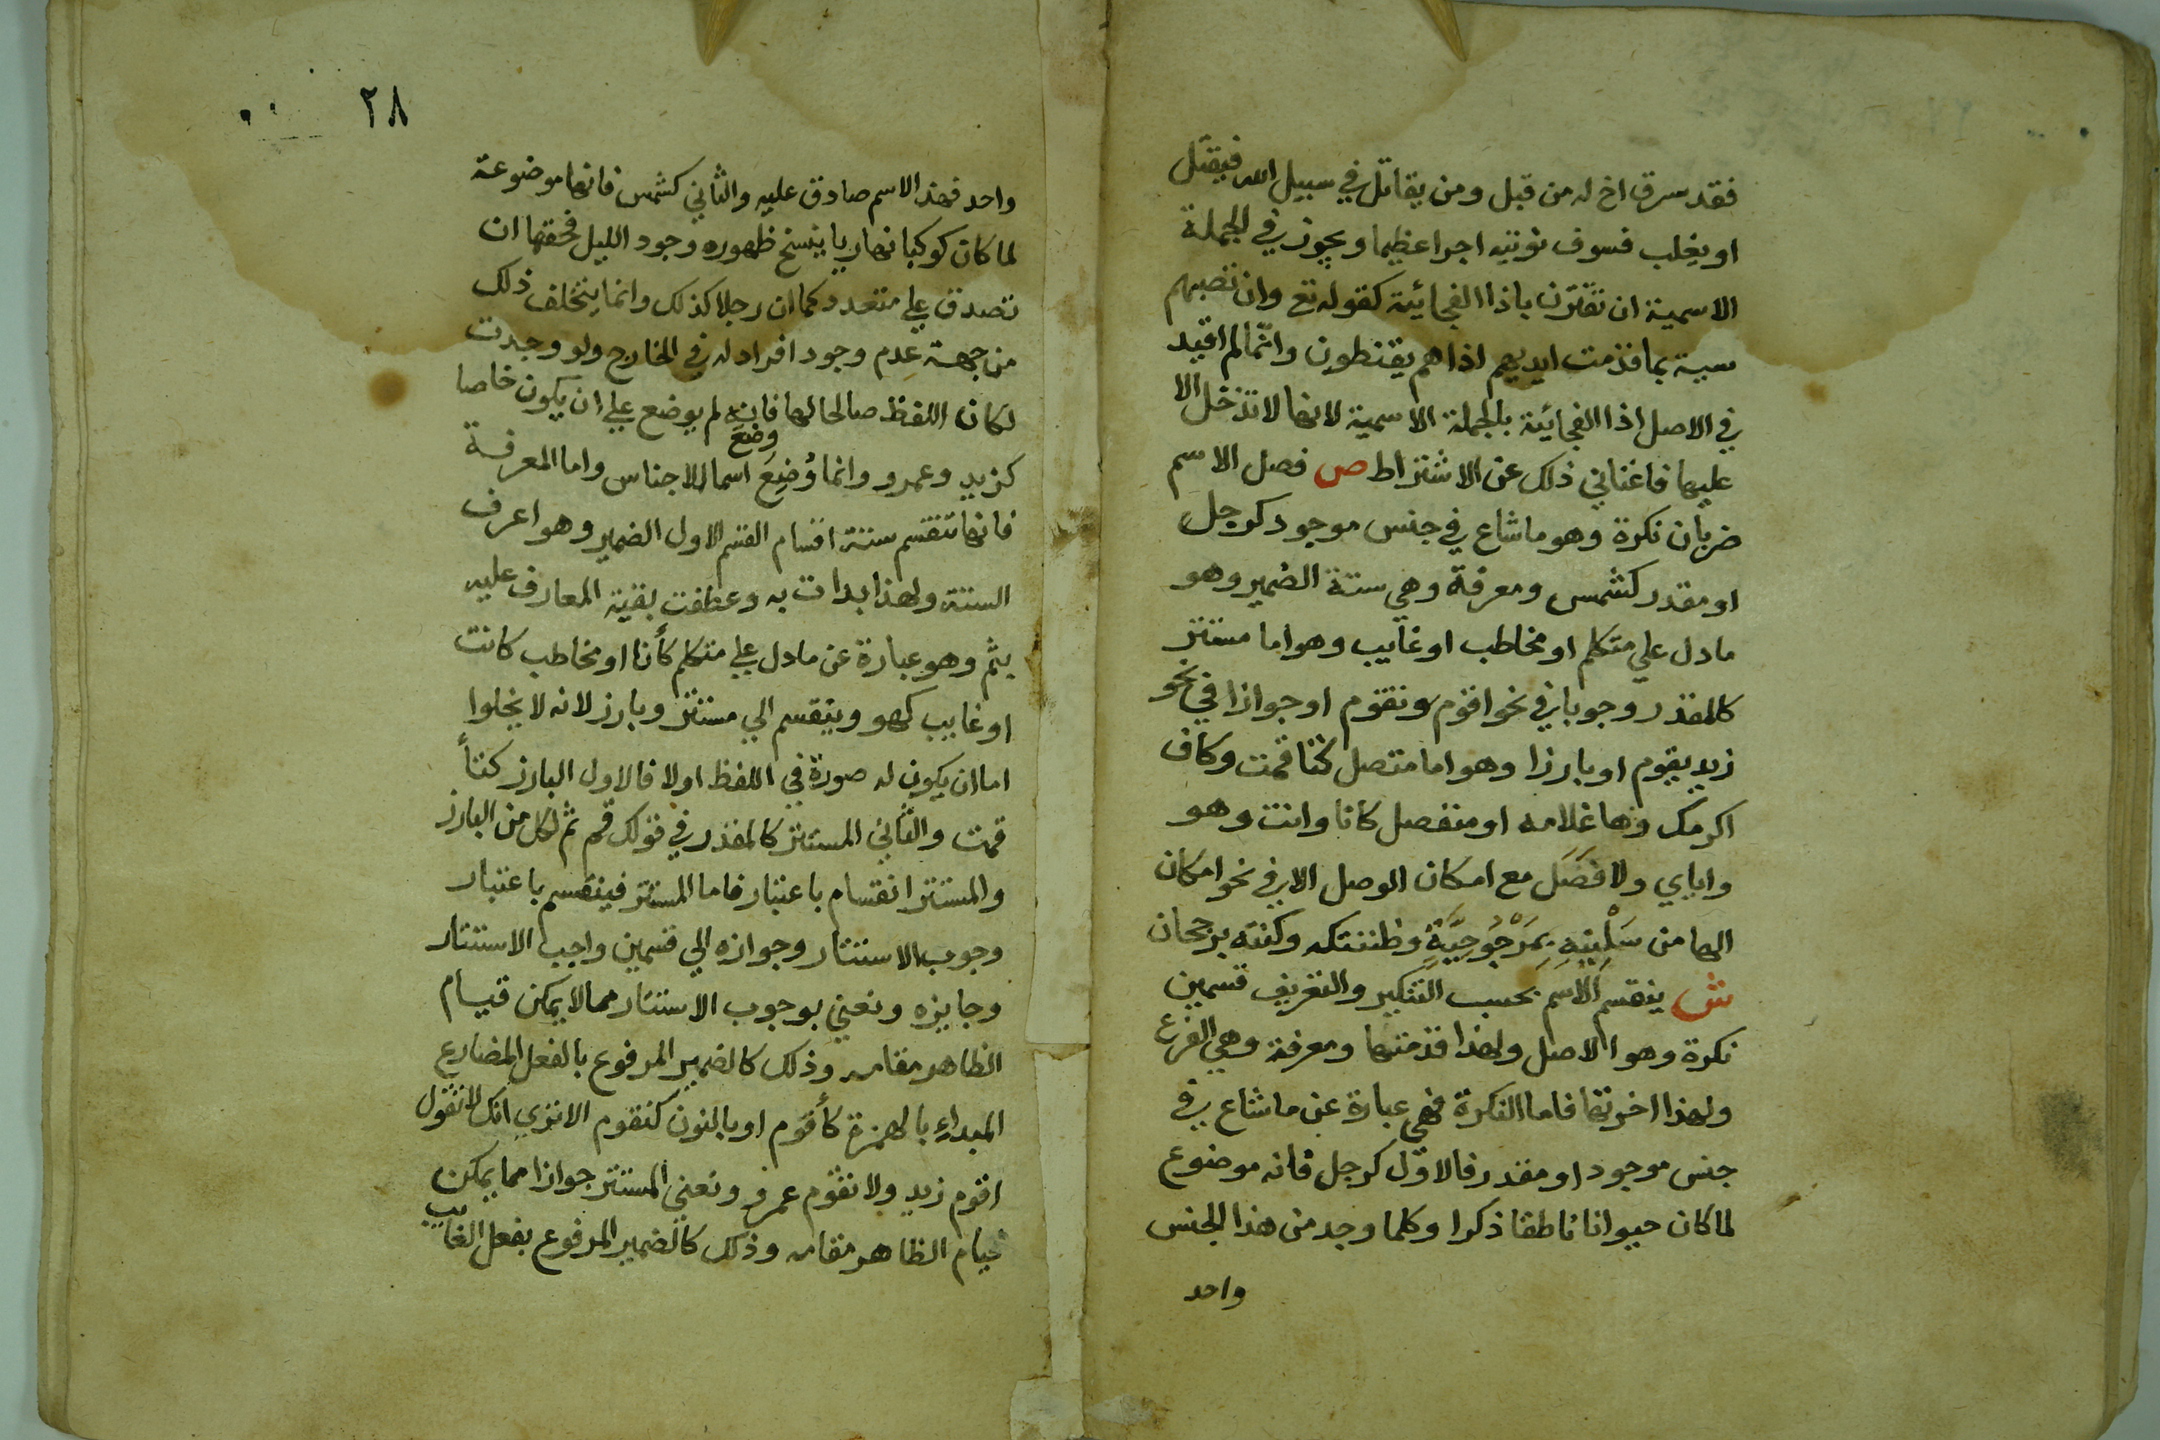 فقد سرق اخ له من قبل ومن يقاتل في سبيل الله فيقتل
او يغلب فسوف نوتيه اجرا عظيما ويجوز في الجملة
الاسمية ان تقترن باذا الفجائية كقوله تع وان تصبهم
سيية بما قدمت ايديهم اذا هم يقنطون وانما لم اقيد
في الاصل اذا الفجائية بالجملة الاسمية لانها لا تدخل الا
عليها فاغناني ذلك عن الاشتراط ص فصل الاسم
ضربان نكرة وهو ما شاع في جنس موجود كرجل
او مقدر كشمس ومعرفة وهي ستة الضمير وهو
ما دل علي متكلم او مخاطب او غايب وهو اما مستتر
كالمقدر وجوبا في نحو اقوم ونقوم او جوازا في نحو
زيد يقوم او بارزا وهو اما متصل كتا قمت وكاف
اكرمك وها غلامه او منفصل كانا وانت وهو
واياي ولا فصل مع امكان الوصل الا في نحو امكان
الها من سلنيه بمرجوحية وظننتكه وكنته برجحان
ش ينقسم الاسم بحسب التنكير والتعريف قسمين
نكرة وهو الاصل ولهذا قدمتها ومعرفة وهي الفرع
ولهذا اخرتها فاما النكرة فهي عبارة عن ما شاع في
جنس موجود او مقدر فالاول كرجل فانه موضوع
لما كان حيوانا ناطقا ذكرا وكلما وجد من هذا الجنس
واحد
٢٨
واحد فهذا الاسم صادق عليه والثاني كشمس فانها موضوعة
لما كان كوكبا نهاريا ينسخ ظهوره وجود الليل فحقها ان
تصدق علي متعدد كما ان رجلا كذلك وانما يتخلف ذلك
من جهة عدم وجود افراد له في الخارج ولو وجدت
لكان اللفظ صالحا لها فانه لم يوضع علي ان يكون خاصا
كزيد وعمرو وانما وُضِعَ وضع اسما الاجناس واما المعرفة
فانها تنقسم ستة اقسام القسم الاول الضمير وهو اعرف
الستة ولهذا بدات به وعطفت بقية المعارف عليه
بثم وهو عبارة عن ما دل علي متكلم كأنا او مخاطب كانت
او غايب كهو وينقسم الي مستتر وبارز لانه لا يخلوا
اما ان يكون له صورة في اللفظ اولا فالاول البارز كتأ
قمت والثاني المستتر كالمقدر في قولك قم ثم لكل من البارز
والمستتر انقسام باعتبار فاما المستتر فينقسم باعتبار
وجوب الاستتار وجوازه الي قسمين واجب الاستتار
وجايزه ونعني بوجوب الاستتار مما لا يمكن قيام
الظاهر مقامه وذلك كالضمير المرفوع بالفعل المضارع
المبداء بالهمزة كأقوم او بالنون كنقوم الا تري انك لا تقول
اقوم زيد ولا نقوم عمرو ونعني المستتر جوازا مما يمكن
قيام الظاهر مقامه وذلك كالضمير المرفوع بفعل الغايب